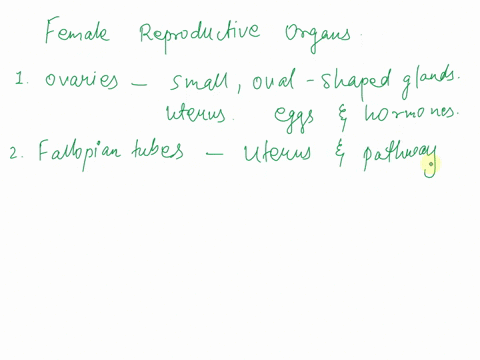 Female Reproductive Organs.
1. Ovaries – small, oval-shaped glands.
uterus. eggs & hormones.
2. Fallopian tubes – uterus & pathway